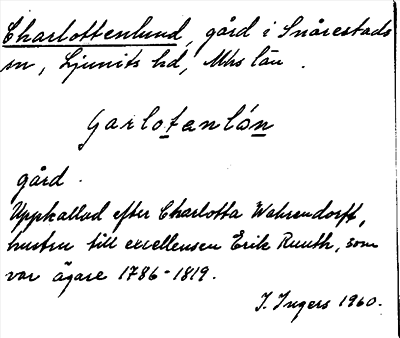 Charlottenlund, gård i Snårestads
sn, Ljunits hd, Mhs län.
Garlotanlón
gård.
Uppkallad efter Charlotta Wahrendorff,
hustru till excellensen Erik Ruuth, som
var ägare 1786-1819.
I. Ingers 1960.